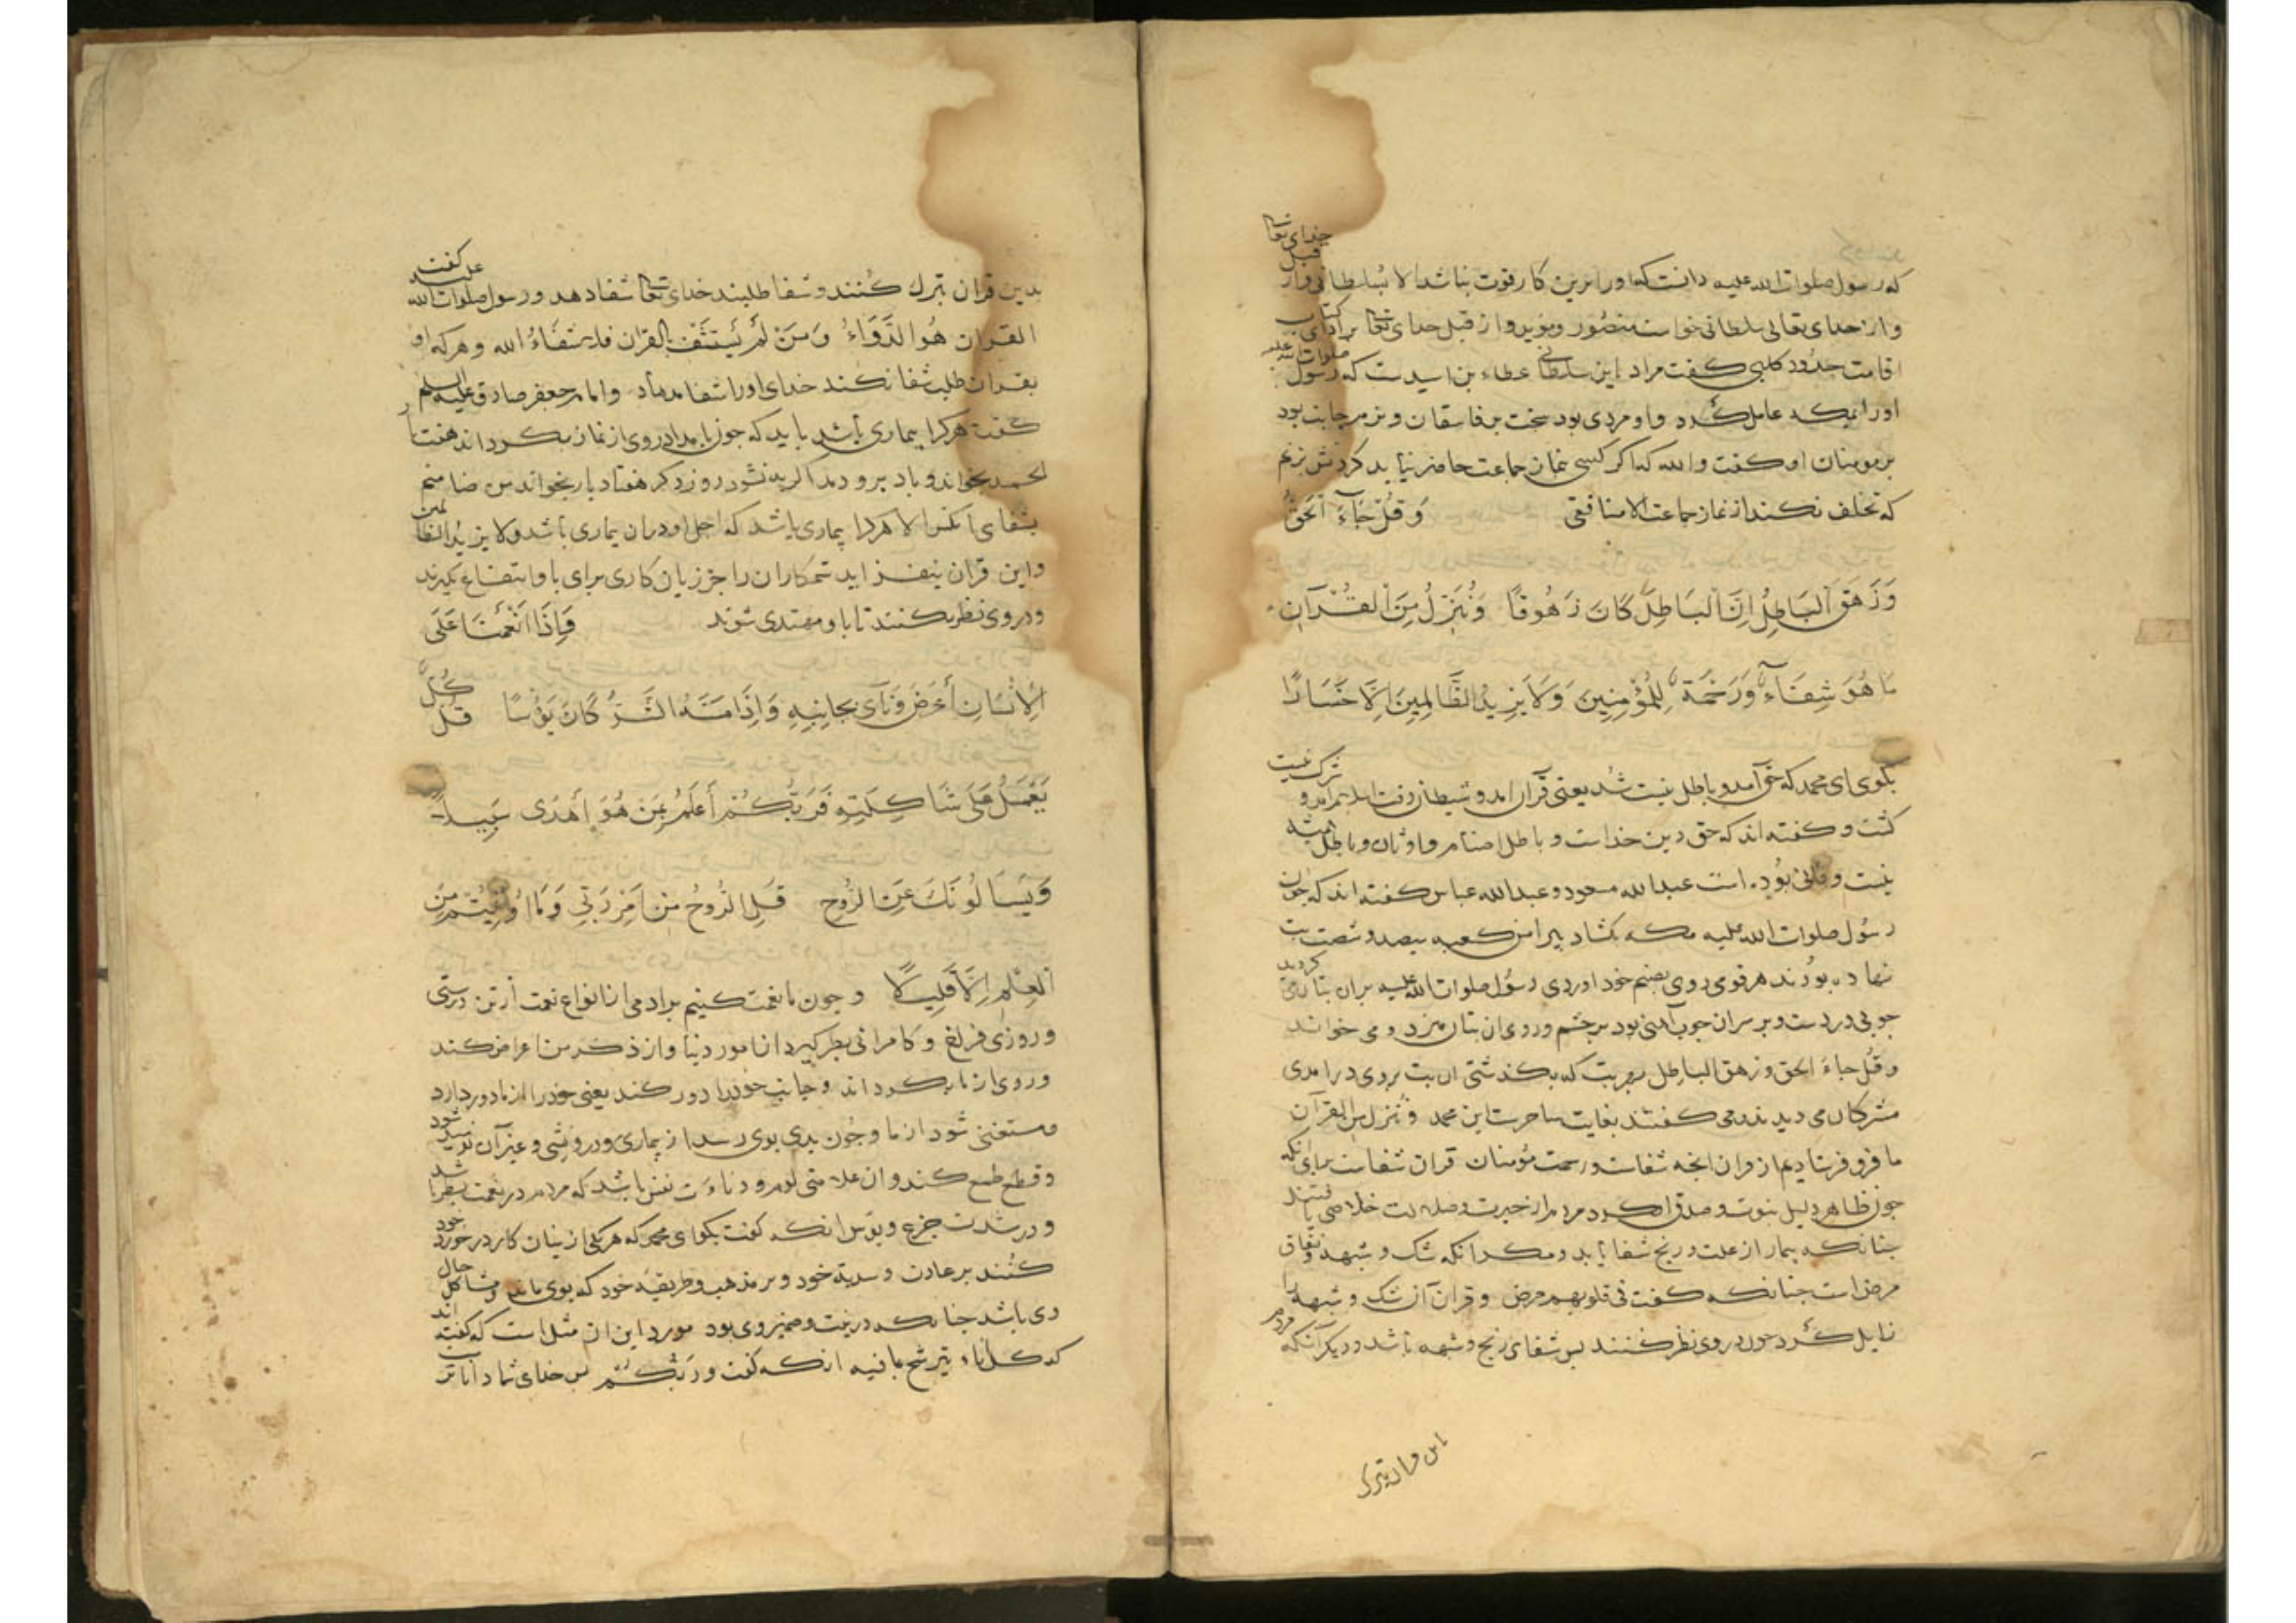 که رسول صلوات الله علیه دانست که او را برین کار قوت نباشد الا بسلطانی و از قبل خدای تعالی
و از خدای تعالی سلطانی خواست منصور و مؤید و از قبل خدای تعالی برای کتاب
اقامت حدود کلبی کفت مراد این سلطان عطاء بن اسیدست که رسول صلوات الله علیه
او را بمکه عامل کرد و او مردی بود سخت بر فاسقان و نرم جانب بود
بر مومنان او کفت و الله که اکر کسی بنماز جماعت حاضر نیاید کردنش بزنم
که تخلف نکند از نماز جماعت الا منافقی وَقُلْ جَاءَ الْحَقُّ
وَزَهَقَ الْبَاطِلُ اِنَّ الْبَاطِلَ كَانَ زَهُوقًا وَنُنَزِّلُ مِنَ الْقُرْآنِ
مَا هُوَ شِفَاءٌ وَرَحْمَةٌ لِلْمُؤْمِنِينَ وَلَا يَزِيدُ الظَّالِمِينَ اِلَّا خَسَارًا
بکوی ای محمد که حق آمد و باطل نیست شد یعنی قرآن امد و شیطان رفت اسلام امد و شرک نیست
کشت و کفته اند که حق دین خداست و باطل اصنام و اوثان و باطل همیشه
نیست و فانی بوده است عبدالله مسعود و عبدالله عباس کفته اند که چون
رسول صلوات الله علیه مکه بکشاد پیرامن کعبه سیصد و شصت بت
نهاده بودند هر قومی روی بصنم خود اوردی رسول صلوات الله علیه بران بتان می کردید
جوبی در دست و بر سر ان جوب آهنی بود بر جشم و روی ان بتان می زد و می خواند
و قُل جاءَ الحق و زهق الباطل بهر بت که بکذشتی ان بت بروی درامدی
مشرکان می دیدند می کفتند بغایت ساحرست این محمد و ننزل من القرآن
ما فرو فرستادیم از قران انجه شفاست و رحمت مؤمنان قران شفاست برای انکه
جون ظاهر دلیل نبوت و صدق او کرد مردم از حیرت و ضلالت خلاصی یافتند
جنانکه بیمار از علت و رنج شفا یابد و مکر انکه شک و شبهه و نفاق
مرض است جنانکه کفت فی قلوبهم مرض و قران آن شک و شبهه را
زایل کرد جون در وی نظر کنند پس شفای رنج و شبهه باشد و دیکر آنکه مردم
این قران تبرک
بدین قران تبرک کنند و شفا طلبند خدای تعالی شفا دهد و رسول صلوات الله علیه کفت
القران هُوَ الدَّوَاءُ وَمَنْ لَمْ يَسْتَشْفِ بِالقران فلا شَفَاءُ الله و هر که او
بقران طلب شفا نکند خدای او را شفا مدهاد و امام جعفر صادق علیه السلم
کفت هر کرا بیماری باشد باید که جون بامداد روی از نماز بکرداند هفت بار
الحمد بخواند و باد برو دمد اکر به نشود روز دکر هفتاد بار بخواند من ضامنم
بشفای انکس الا هر کرا بیماری باشد که اجل او دران بیماری باشد و لا یزید الظالمین
و این قران نیفزاید ستمکاران را جز زیان کاری برای با و انتفاع نکیرند
و در وی نظر نکنند تا با و مهتدی شوند وَاِذَا اَنْعَمْنَا عَلَى
الْاِنْسَانِ أَعْرَضَ وَنَآىٰ بِجَانِبِهِ وَاِذَا مَسَّهُ الشَّرُّ كَانَ يَؤُسًا قُلْ كُلٌّ
يَعْمَلُ عَلَى شَاكِلَتِهِ فَرَبُّكُمْ أَعْلَمُ بِمَنْ هُوَ أَهْدَى سَبِيلًا
وَيَسْأَلُونَكَ عَنِ الرُّوحِ قُلِ الرُّوحُ مِنْ اَمْرِ رَبِّي وَمَا اُوتِيتُمْ مِنَ
الْعِلْمِ اِلَّا قَلِيلًا و جون ما نعمت کنیم براد می از انواع نعمت از تن درستی
و روزی فراخ و کامرانی بطر کیرد از امور دنیا و از ذکر من اعراض کند
و روی از ما بکرداند و جانب خود را دور کند یعنی خود را از ما دور دارد
و مستغنی شود از ما و جون بدی بوی رسد از بیماری و درویشی و غیر آن نومید شود
و قطع طمع کند و ان علامتی لوم و دناءت نفس باشد که مردم در نعمت بطر باشد
و در شدت جزع و یؤس انکه کفت بکو ای محمد که هر یکی از ینان کار در خورد خود
کنند بر عادت و سیرت خود و بر مذهب و طریقه خود که بوی ماند و مشاکل حال
وی باشد جنانکه در نیت و ضمیر وی بود مورد این ان مثل است که کفته اند
که کل اناء یترشح بما فیه انکه کفت و ربُّکم پس خدای شما داناتر